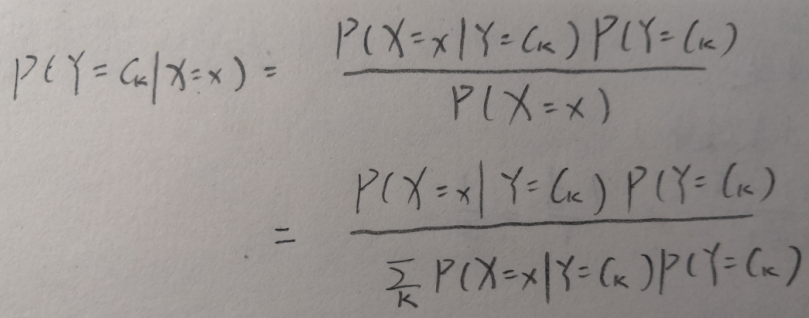 P(Y=Cₖ|X=x) = P(X=x|Y=Cₖ)P(Y=Cₖ) / P(X=x)
= P(X=x|Y=Cₖ)P(Y=Cₖ) / Σₖ P(X=x|Y=Cₖ)P(Y=Cₖ)